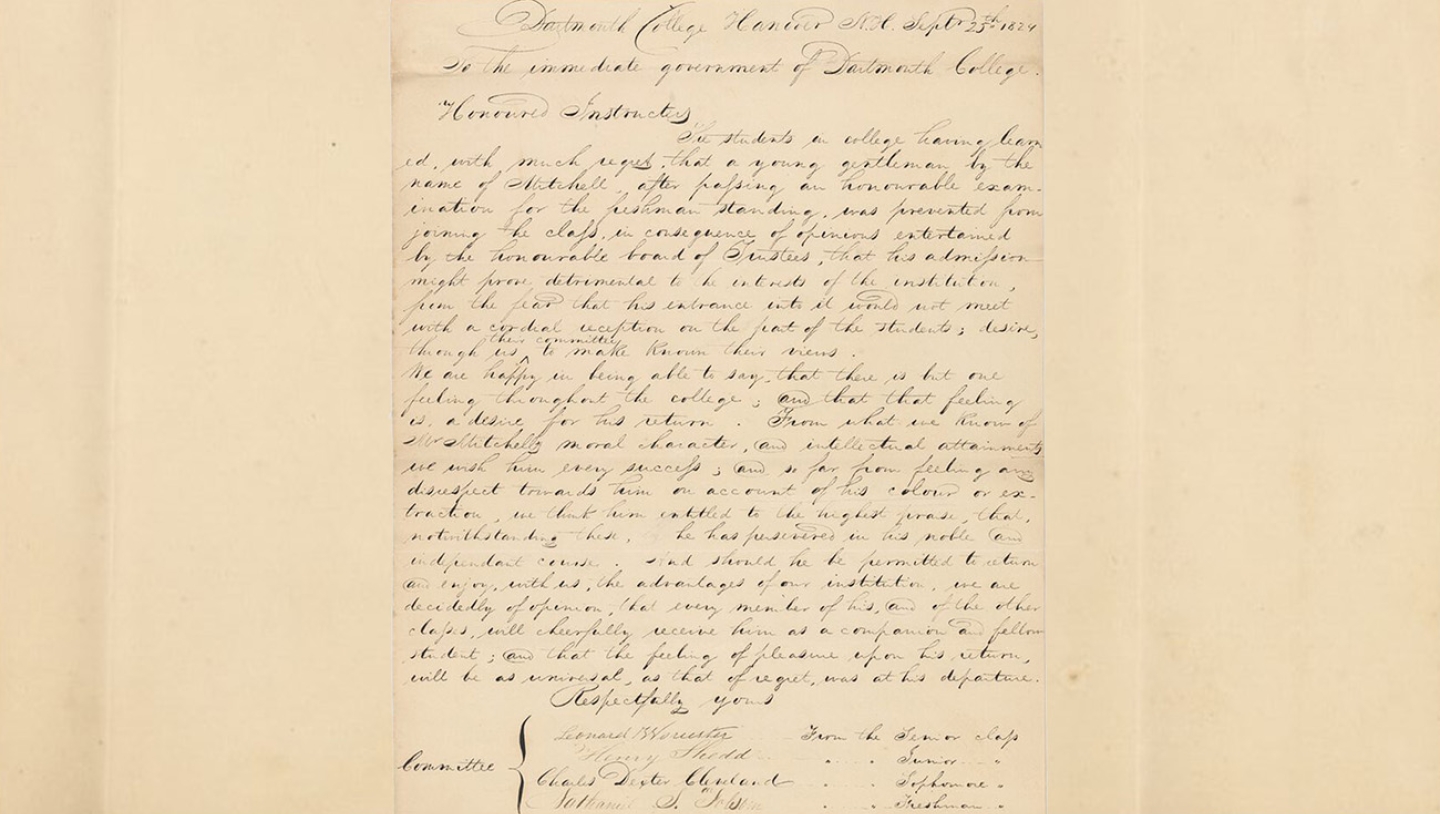 Dartmouth College Hanover N.H. Septr 25th 1824
To the immediate government of Dartmouth College.
Honoured Instructers
The students in college having learn
ed, with much regret, that a young gentleman by the
name of Mitchell, after passing an honourable exam-
ination for the freshman standing, was prevented from
joining the class, in consequence of opinions entertained
by the honourable board of Trustees, that his admission
might prove detrimental to the interests of the institution,
from the fear that his entrance into it would not meet
with a cordial reception on the part of the students; desire,
their committee
through us, ^ to make known their views.
We are happy in being able to say, that there is but one
feeling throughout the college; and that that feeling
is, a desire for his return. From what we know of
Mr Mitchells moral character, and intellectual attainments
we wish him every success; and so far from feeling any
disrespect towards him on account of his colour or ex-
traction, we think him entitled to the highest praise, that,
notwithstanding these, he has persevered in his noble and
independant course. And should he be permitted to return
and enjoy, with us, the advantages of our institution, we are
decidedly of opinion, that every member of his, and of the other
classes, will cheerfully receive him as a companion and fellow
student; and that the feeling of pleasure upon his return,
will be as universal, as that of regret, was at his departure.
Respectfully yours
Leonard Worcester From the Senior class
Henry Shedd " " Junior "
Committee { Charles Dexter Cleveland " " Sophomore "
Nathaniel S. Folsom " " Freshman "